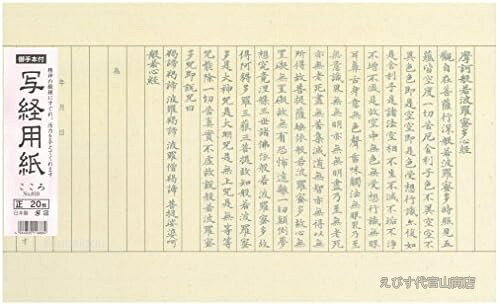 摩訶般若波羅蜜多心経
観自在菩薩行深般若波羅蜜多時照見五
蘊皆空度一切苦厄舎利子色不異空空不
異色色即是空空即是色受想行識亦復如
是舎利子是諸法空相不生不滅不垢不浄
不増不減是故空中無色無受想行識無眼
耳鼻舌身意無色声香味触法無眼界乃至
無意識界無無明亦無無明尽乃至無老死
亦無老死尽無苦集滅道無智亦無得以無
所得故菩提薩埵依般若波羅蜜多故心無
罣礙無罣礙故無有恐怖遠離一切顛倒夢
想究竟涅槃三世諸仏依般若波羅蜜多故
得阿耨多羅三藐三菩提故知般若波羅蜜
多是大神呪是大明呪是無上呪是無等等
呪能除一切苦真実不虚故説般若波羅蜜
多呪即説呪曰
羯諦羯諦 波羅羯諦 波羅僧羯諦 菩提娑婆訶
般若心経
為
年 月 日
御手本付
写経用紙
こころ
正 20枚
日本製
えびす代官山商店